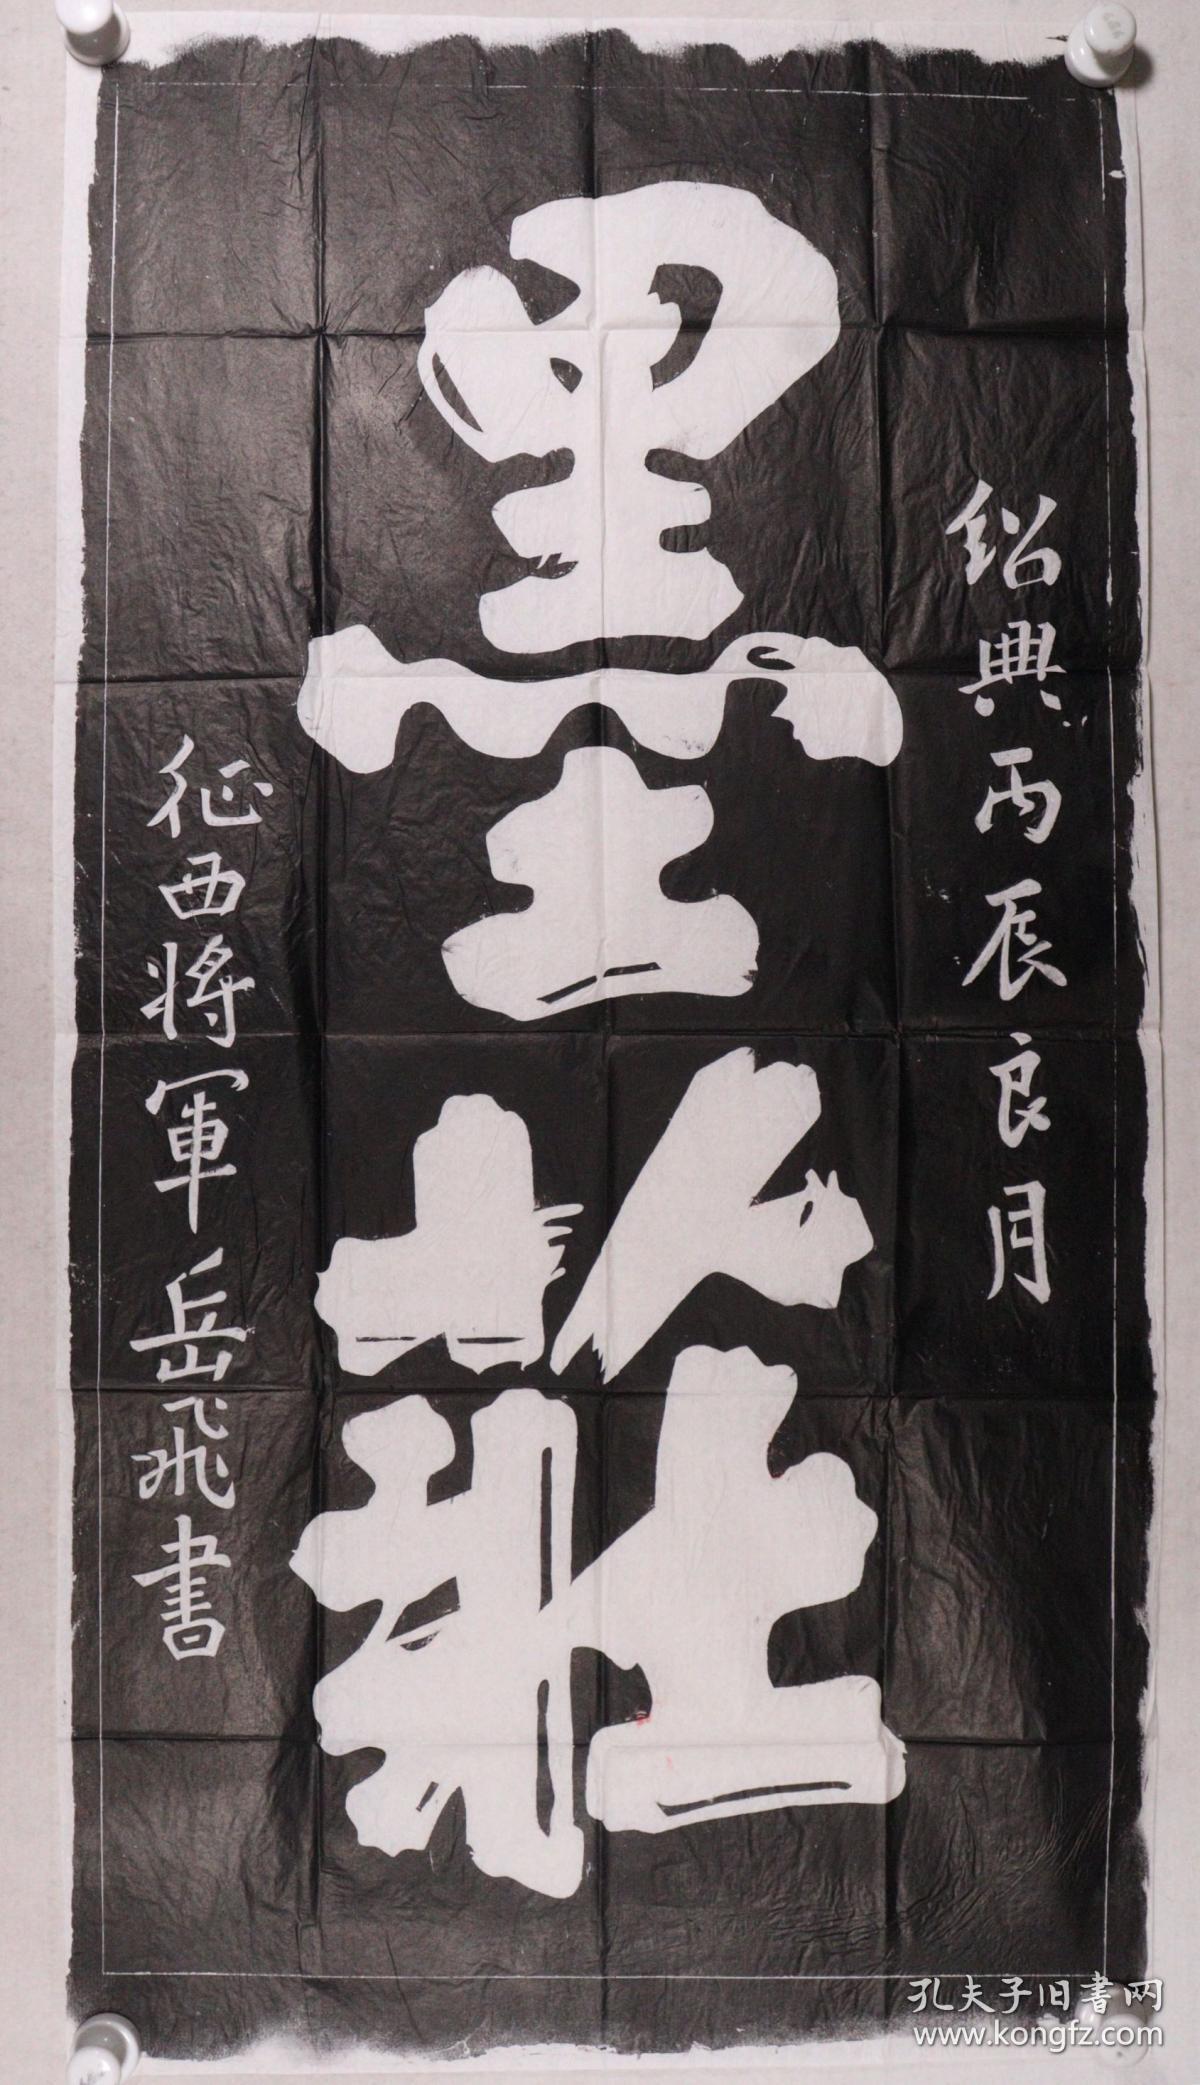 紹興丙辰良月
墨莊
征西將軍岳飛書
孔夫子旧書网
www.kongfz.com